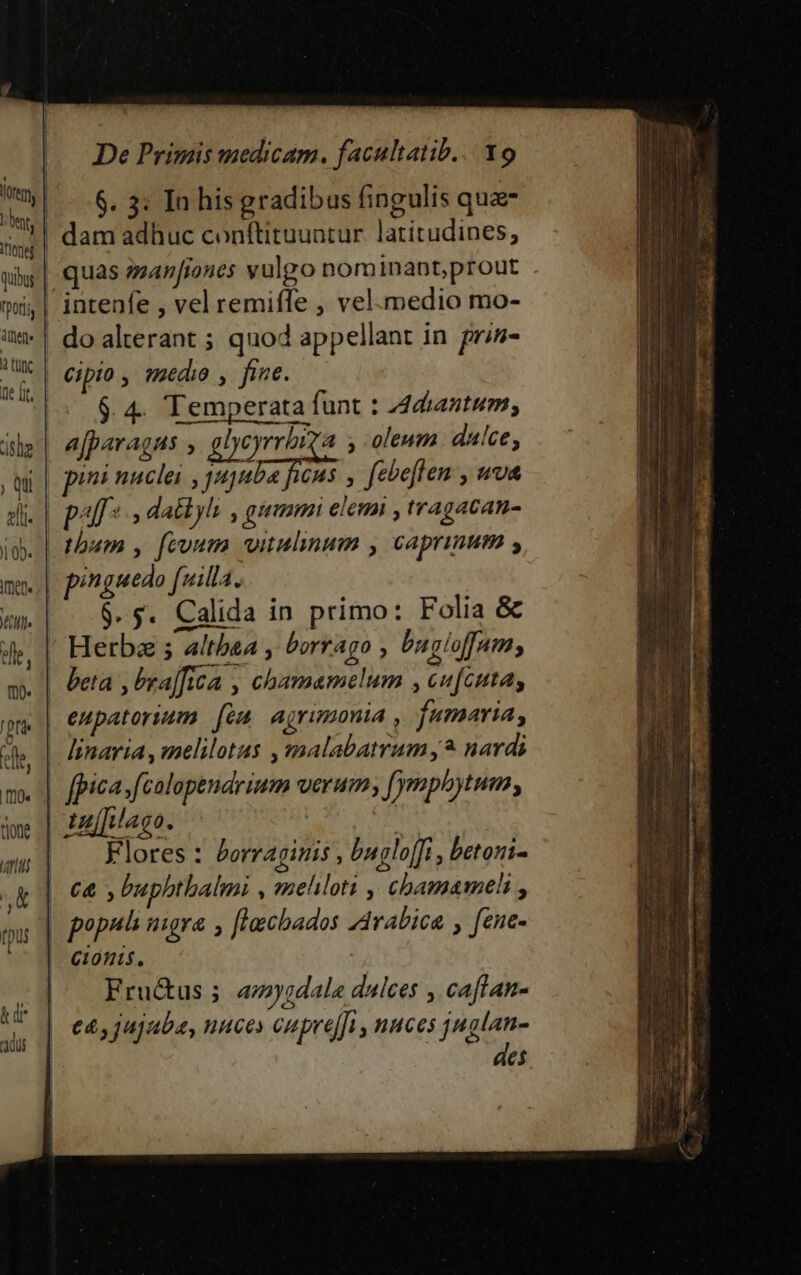 De Primis medicam. facultatib. 19
§. 3. In his gradibus ſingulis quæ-
dam adhuc conſtituuntur latitudines,
quas manſiones vulgo nominant, prout
intenſe, vel remiſſe, vel medio mo-
do alterant; quod appellant in prin-
cipio, medio, fine.
§. 4. Temperata ſunt: Adiantum,
aſparagus, glycyrrhiza, oleum dulce,
pini nuclei, jujubæ ficus, ſebeſten, uvæ
paſſæ, dactyli, gummi elemi, tragacan-
thum, ſevum vitulinum, caprinum,
pinguedo ſuilla.
§. 5. Calida in primo: Folia &
Herbæ; althæa, borrago, bugloſſum,
beta, braſſica, chamæmelum, cuſcuta,
eupatorium ſeu agrimonia, fumaria,
linaria, melilotus, malabatrum, a nardi
ſpica, ſcolopendrium verum, ſymphytum,
tuſſilago.
Flores: borraginis, bugloſſi, betoni-
cæ, buphthalmi, meliloti, chamæmeli,
populi nigræ, ſtæchados Arabicæ, ſene-
cionis.
Fructus; amygdalæ dulces, caſtan-
eæ, jujubæ, nuces cupreſſi, nuces juglan-
des